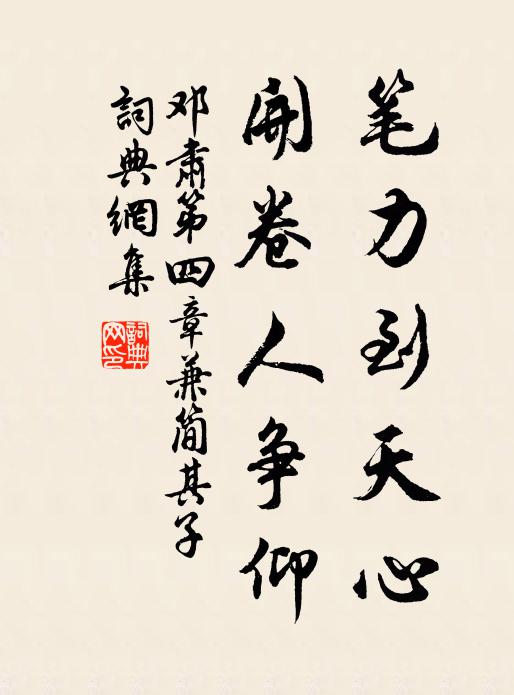 笔力到天心
開卷人争仰
邓肃第四章兼简其子
詞典網集
詞典网印